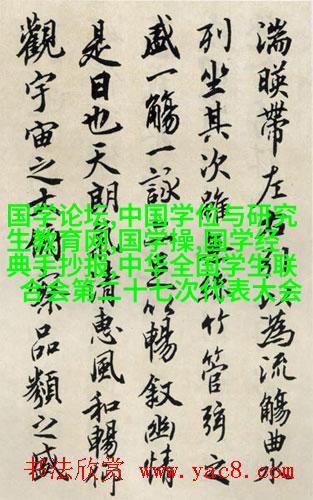 湍暎帶左右為流觴曲水
列坐其次雖無絲竹管弦之
盛一觴一詠亦足以暢敘幽情
是日也天朗氣清惠風和暢仰
觀宇宙之大俯察品類之盛
国学论坛,中国学位与研究
生教育网,国学操,国学经
典手抄报,中华全国学生联
合会第二十七次代表大会
书法欣赏 www.yac8.com